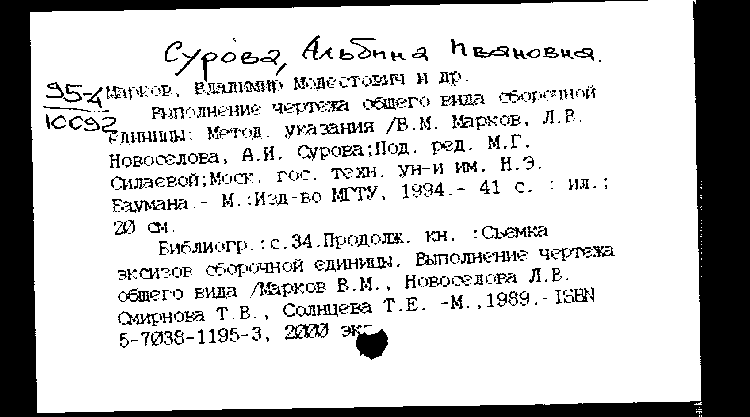 Сурова, Альбина Ивановна.
95-4
10092
Марков, Владимир Модестович и др.
Выполнение чертежа общего вида сборочной
единицы: Метод. указания /В.М. Марков, Л.В.
Новоселова, А.И. Сурова;Под. ред. М.Г.
Силаевой;Моск. гос. техн. ун-и им. Н.Э.
Баумана.- М.:Изд-во МГТУ, 1994.- 41 с. : ил.;
20 см.
Библиогр.:с.34.Продолж. кн. :Съемка
эксизов сборочной единицы. Выполнение чертежа
общего вида /Марков В.М., Новоселова Л.В.
Смирнова Т.В., Солнцева Т.Е. -М.,1989.- ISBN
5-7038-1195-3, 2000 экз